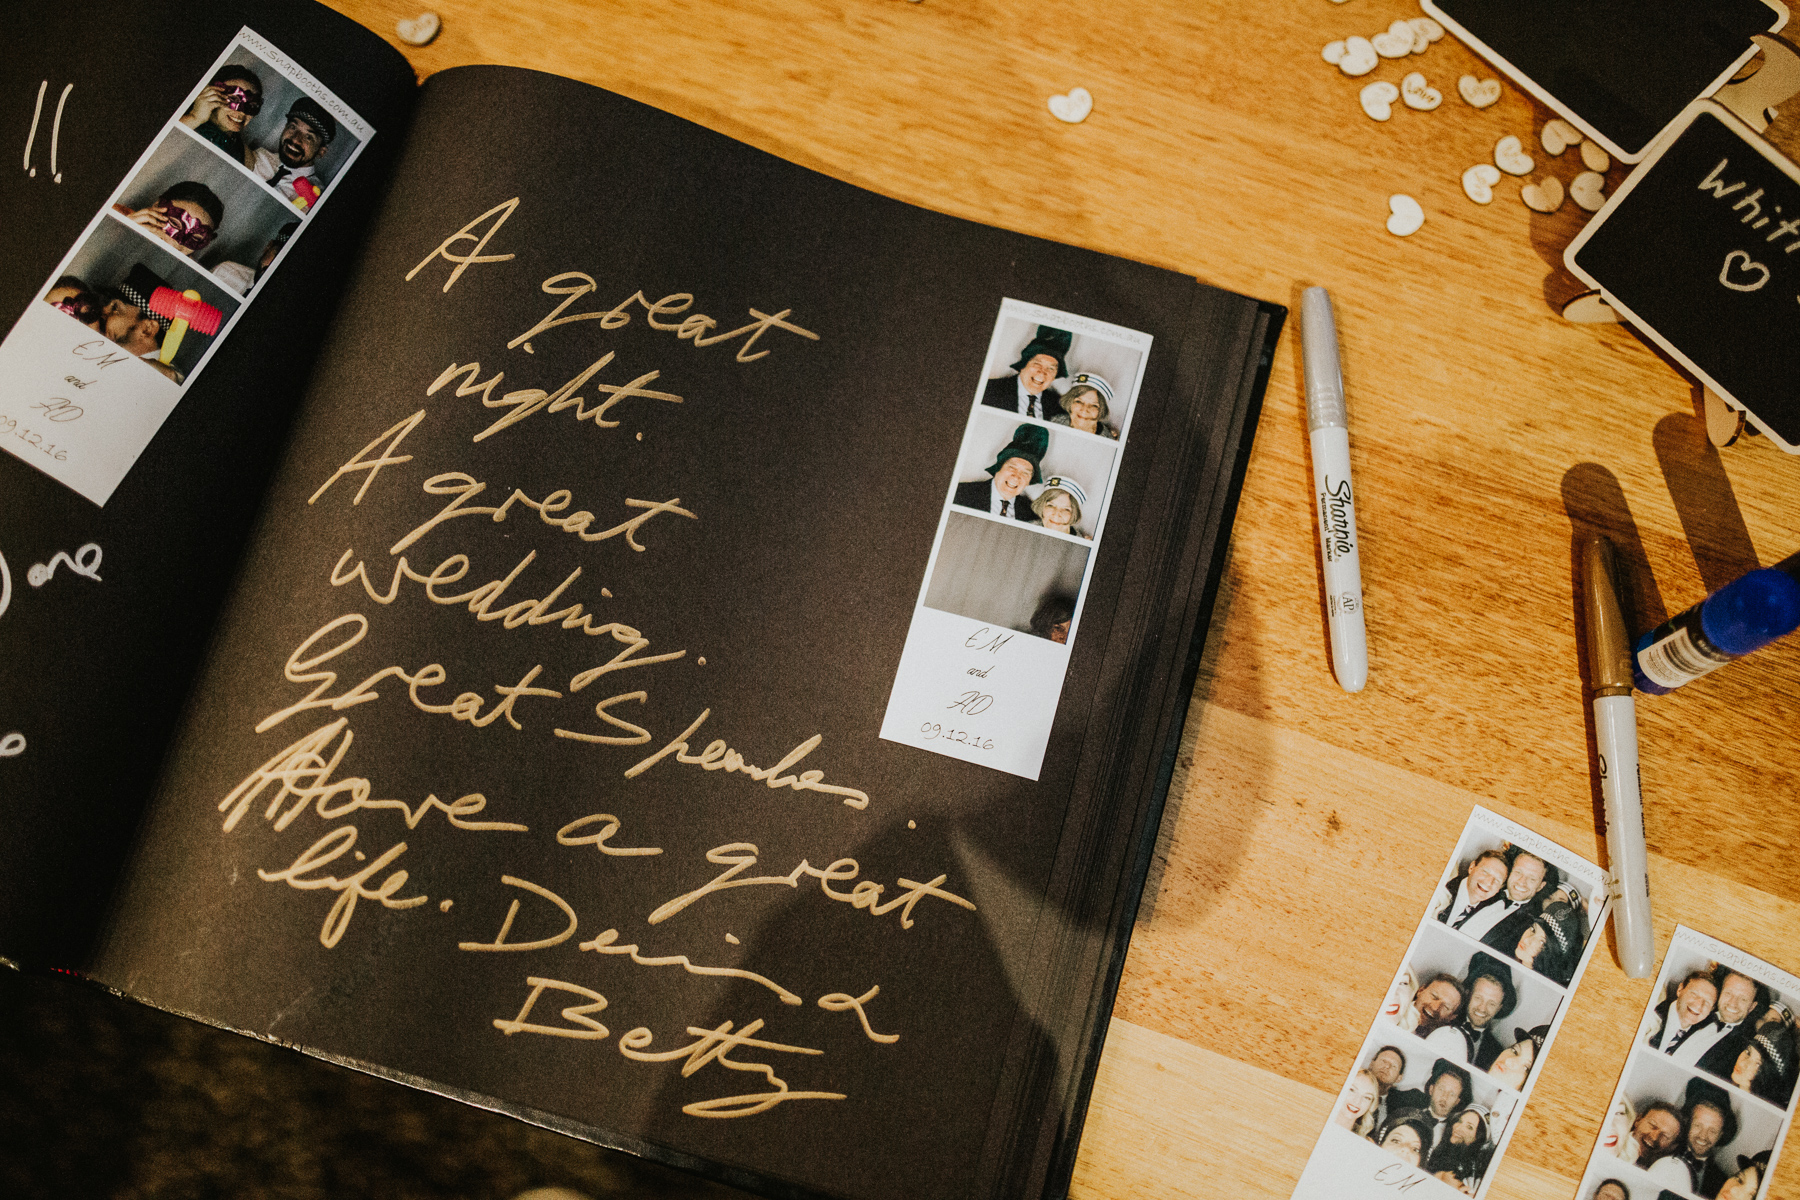 !!
www.snapbooths.com.au
EM
and
AD
09.12.16
A great
night.
A great
wedding.
Great Speeches.
Have a great
life. Denis &
Betty
www.snapbooths.com.au
EM
and
AD
09.12.16
Love
Whit
Sharpie
Permanent Marker
AP
www.snapbooths.com.au
EM
www.snapbooths.com